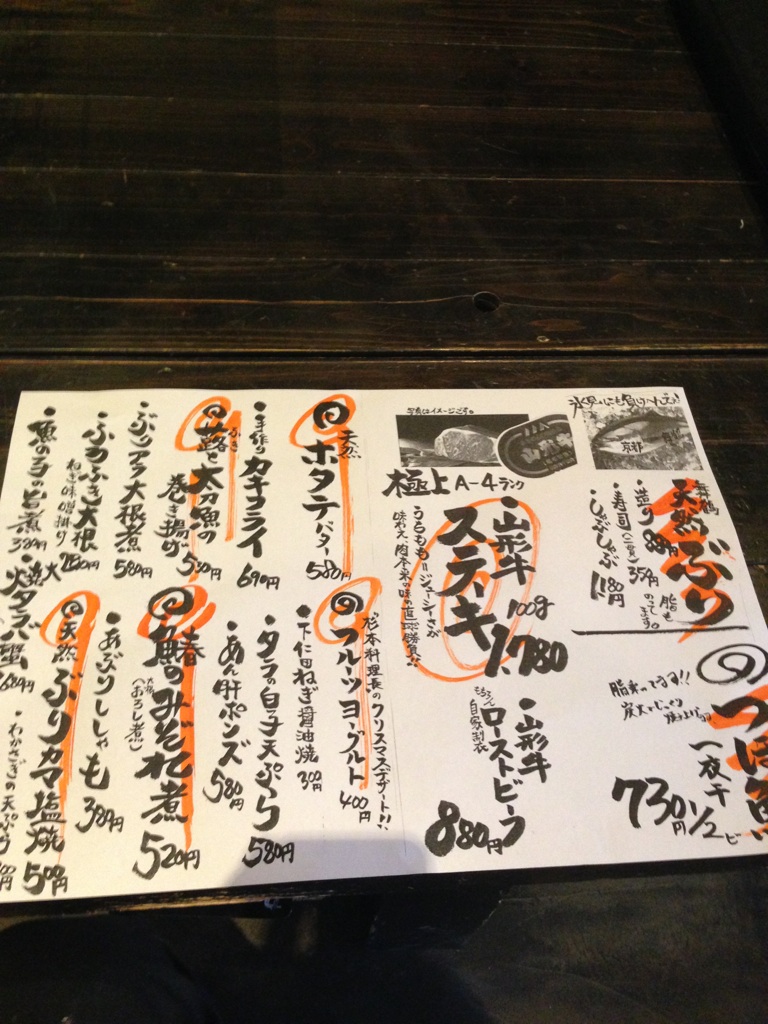 氷見にも負けへんで!
京都
舞鶴
天然ぶり
脂も
のってます。
造り 880円
寿司(二貫) 350円
しゃぶしゃぶ 1180円
脂のってます!!
一夜干
1/2ビ
730円
写真はイメージです。
極上 A-4ランク
・山形牛
ステーキ
100g
1,780
うちもも=ジューシーさが
味わえ、肉本来の味の直球勝負!!
・山形牛
もちろん自家製
ローストビーフ
880円
天然
ホタテバター
580円
・手作りカキフライ
690円
蕗と太刀魚の
ふき
巻き揚げ
530円
・ぶりアラ大根煮
580円
・ふろふき大根
ねぎ味噌掛け
280円
・魚の子の旨煮
380円
杉本料理長のクリスマスデザート!!
フルーツヨーグルト
400円
・下仁田ねぎ醤油焼
300円
・タラの白子天ぷら
580円
・あん肝ポンズ
580円
・鰆のみぞれ煮
大根
(おろし煮)
520円
・あぶりししゃも
380円
天然ぶりカマ塩焼
500円
焼タラバ蟹
680円
・わかさぎの天ぷら